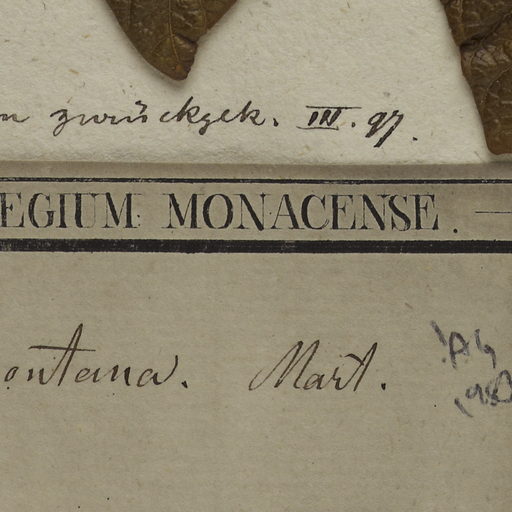 n zurückgek. III. 97.
EGIUM MONACENSE.
ontana. Mart.
!AG
198